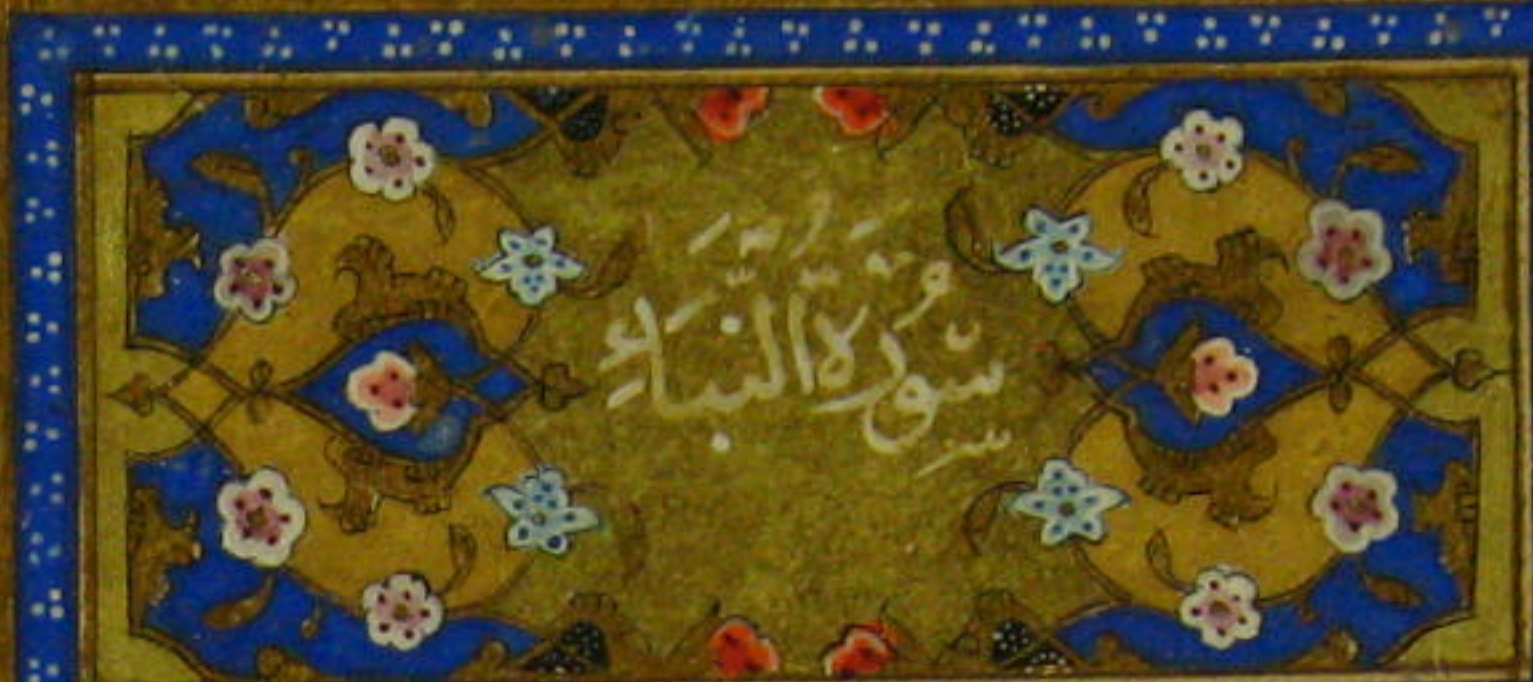 سُوْرَةُ النَّبَاءِ